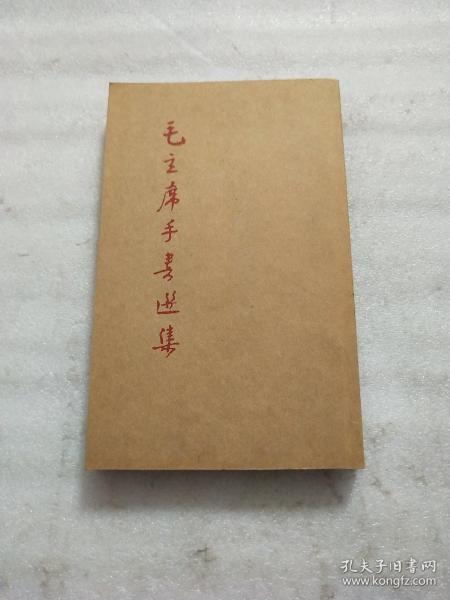 毛主席手書選集
孔夫子旧书网
www.kongfz.com